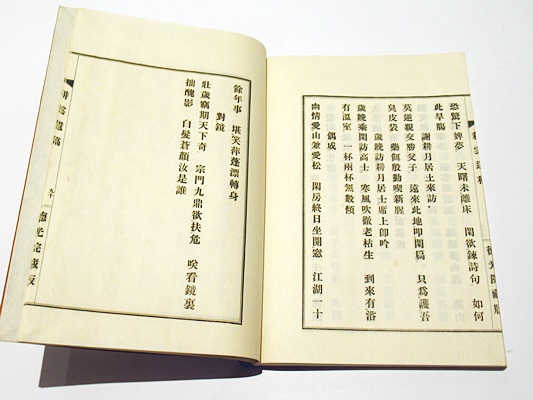 恐驚下婢夢　天曙未離床　閑欲鍊詩句　如何
此早腸
謝耕月居士來訪
莫逆親交勝父子　遠來此地叩閑扃　只爲護吾
臭皮袋　藥餌殷勤喫新腥
歲晚訪耕月居士席上卽吟
歲晚乘閑訪高士　寒風吹徹老枯生　到來有浴
有溫室　一杯兩杯無數傾
偶成
幽情愛山兼愛松　閑房終日坐開窓　江湖一十
餘年事　堪笑萍蓬漂轉身
對鏡
壯歲竊期天下奇　宗門九鼎欲扶危　咲看鏡裏
拙醜影　白髮蒼顏汝是誰
九十